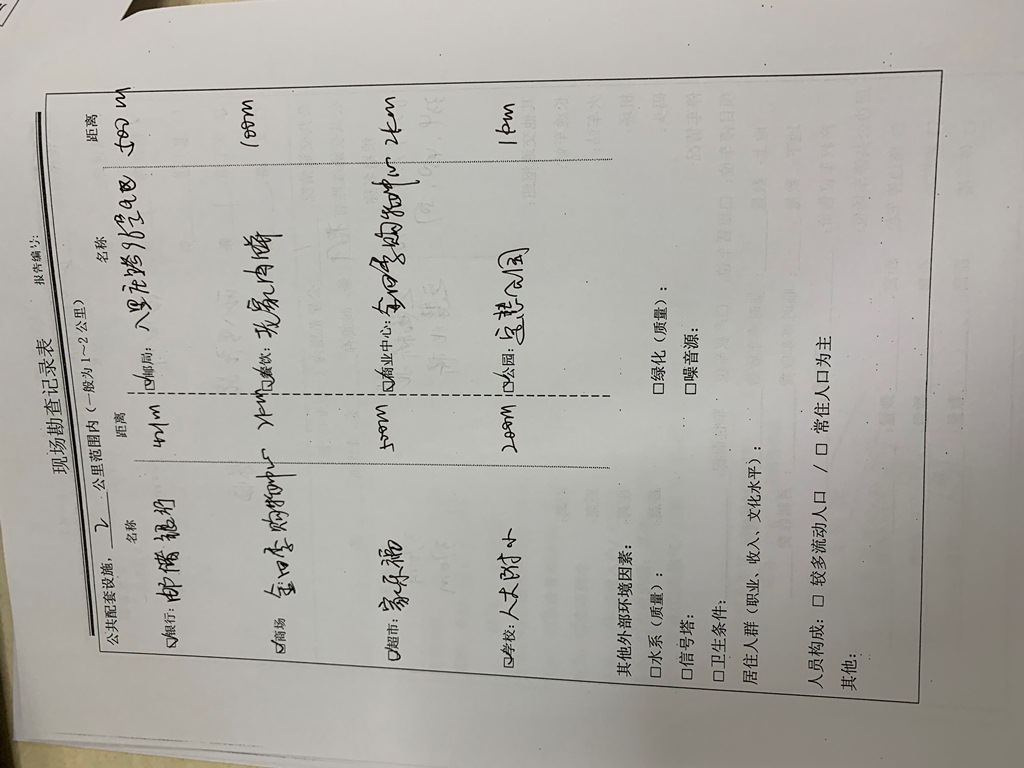 现场勘查记录表
报告编号:
公共配套设施, 2 公里范围内（一般为1~2公里）
名称 距离 名称 距离
☑银行: 邮储银行 ☑邮局: 八里庄路 500m
☑商场 金四季购物中心 2km ☑餐饮: 100m
☑超市: 家乐福 500m ☑商业中心: 金四季购物中心 2km
☑学校: 人大附小 200m ☑公园: 定慧公园 1km
其他外部环境因素:
□水系（质量）: □绿化（质量）:
□信号塔: □噪音源:
□卫生条件:
居住人群（职业、收入、文化水平）:
人员构成: □ 较多流动人口 / □ 常住人口为主
其他: